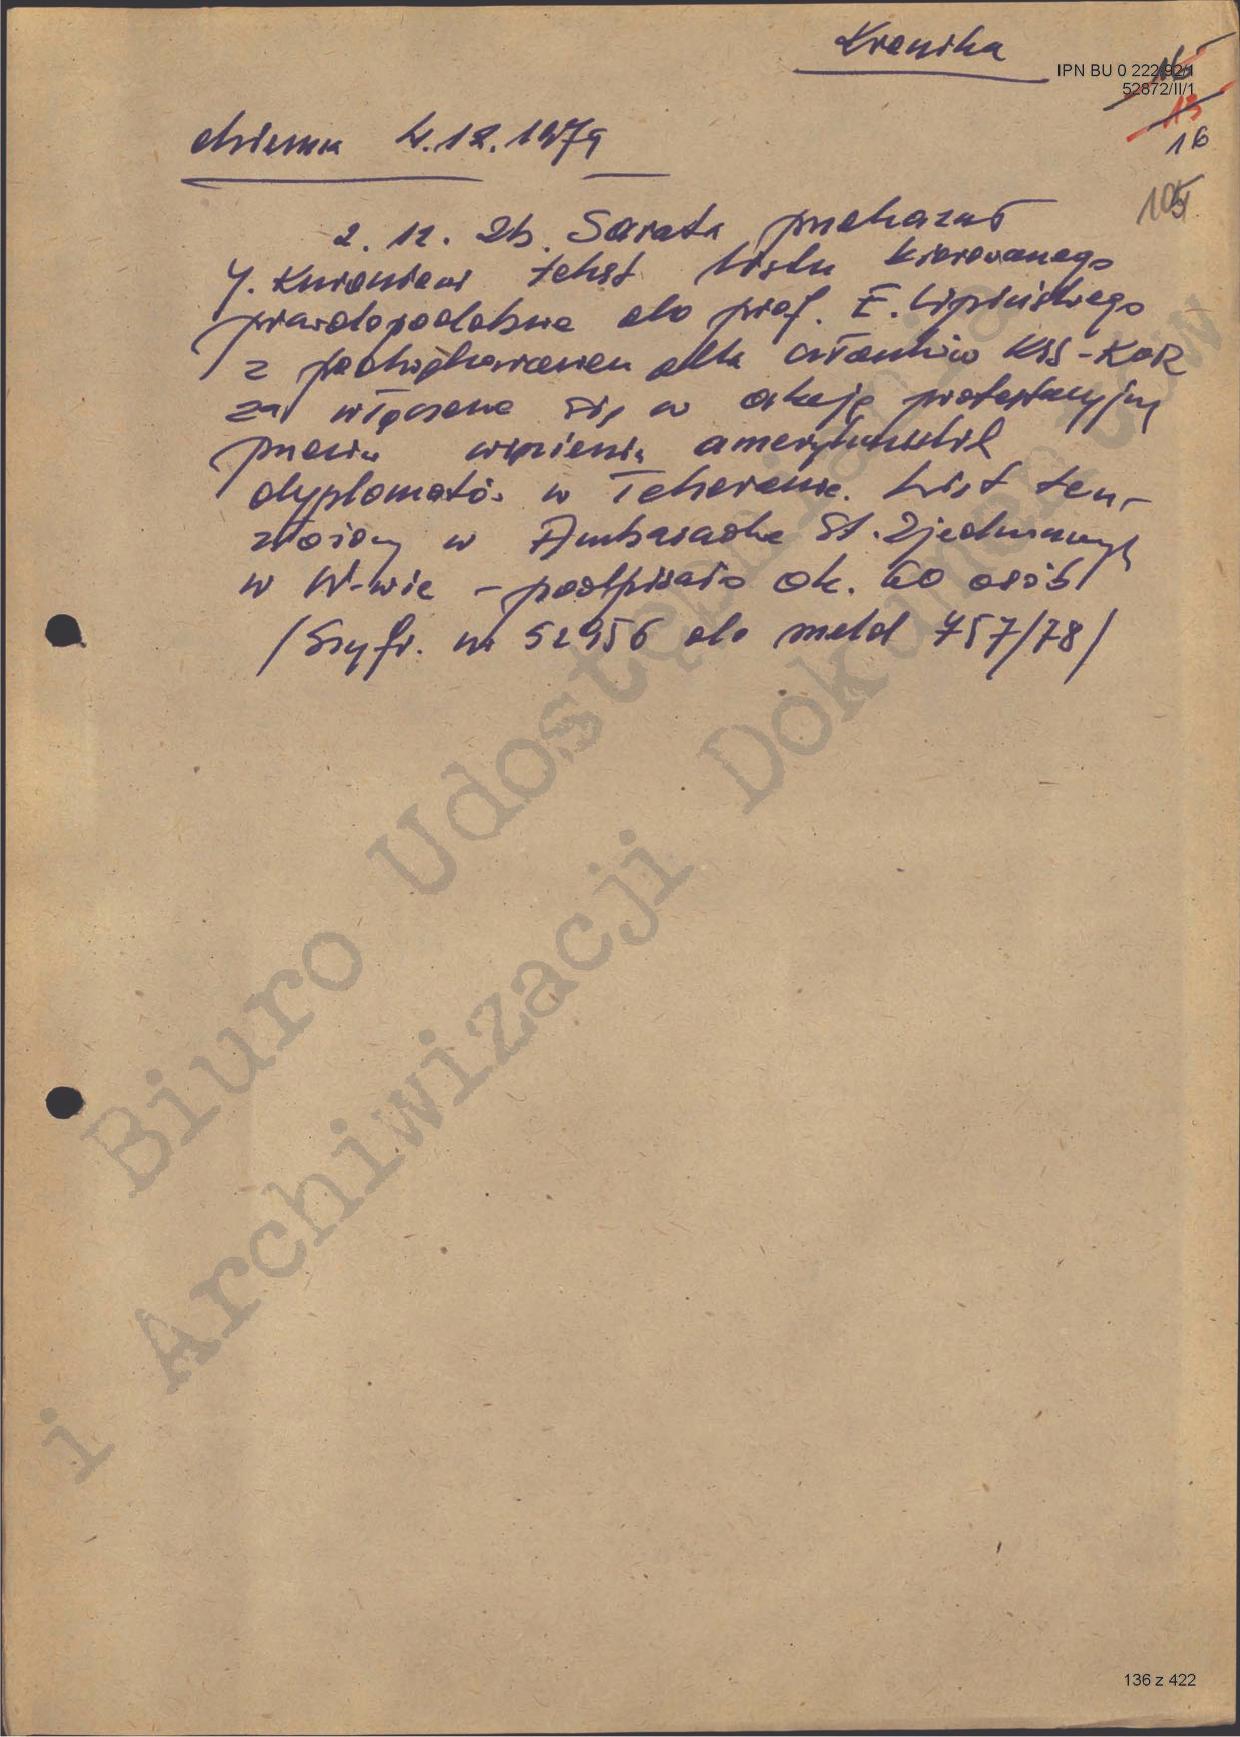 Kronika
IPN BU 0 222/92/1
52872/II/1
16
13
16
105
dzienna 4.12.1979
2.12. Zb. Sarata przekazał
J. Kuroniowi tekst listu kierowanego
prawdopodobnie do prof. E. Lipińskiego
z podziękowaniem dla członków KSS-KOR
za włączenie się w akcję protestacyjną
przeciw więzieniu amerykańskich
dyplomatów w Teheranie. List ten -
złożony w Ambasadzie St. Zjednoczonych
w W-wie - podpisało ok. 60 osób
/Szyfr. nr 52956 do meld 757/78/
Biuro Udostępniania
i Archiwizacji Dokumentów
136 z 422